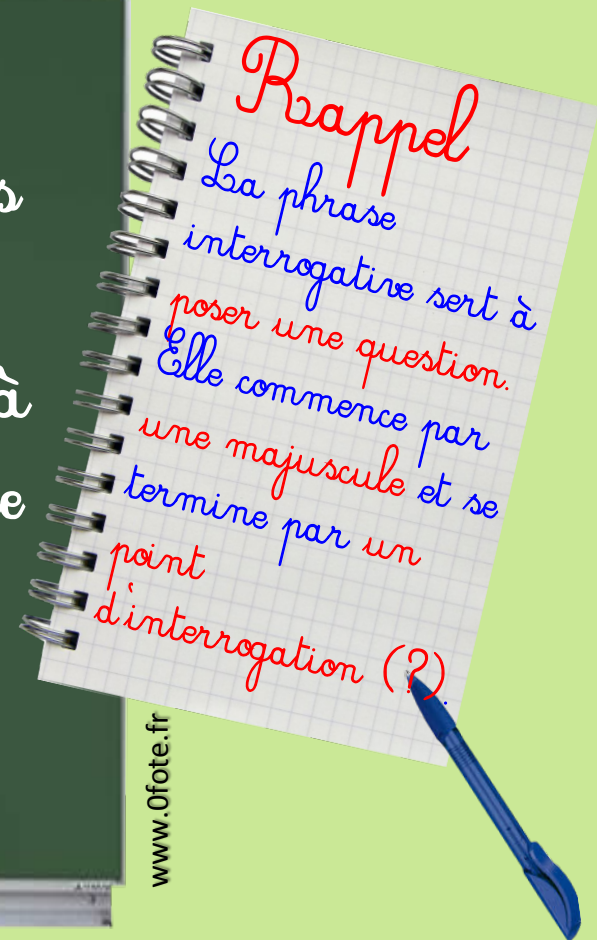 s
à
e
Rappel
La phrase
interrogative sert à
poser une question.
Elle commence par
une majuscule et se
termine par un
point
d'interrogation (?).
www.0fote.fr